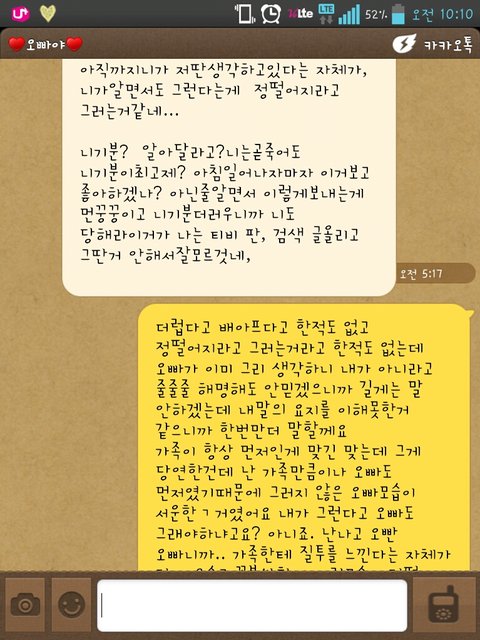 U+
LTE
52%
오전 10:10
오빠야
카카오톡
아직까지니가 저딴생각하고있다는 자체가,
니가알면서도 그런다는게 정떨어지라고
그러는거같네...
니기분? 알아달라고?니는곧죽어도
니기분이최고제? 아침일어나자마자 이거보고
좋아하겠나? 아닌줄알면서 이렇게보내는게
먼꿍꿍이고 니기분더러우니까 니도
당해라이거가 나는 티비 판, 검색 글올리고
그딴거 안해서잘모르것네,
오전 5:17
더럽다고 배아프다고 한적도 없고
정떨어지라고 그러는거라고 한적도 없는데
오빠가 이미 그리 생각하니 내가 아니라고
줄줄줄 해명해도 안믿겠으니까 길게는 말
안하겠는데 내말의 요지를 이해못한거
같으니까 한번만더 말할께요
가족이 항상 먼저인게 맞긴 맞는데 그게
당연한건데 난 가족만큼이나 오빠도
먼저였기때문에 그러지 않은 오빠모습이
서운한ㄱ거였어요 내가 그런다고 오빠도
그래야하냐고요? 아니죠. 난나고 오빤
오빠니까.. 가족한테 질투를 느낀다는 자체가